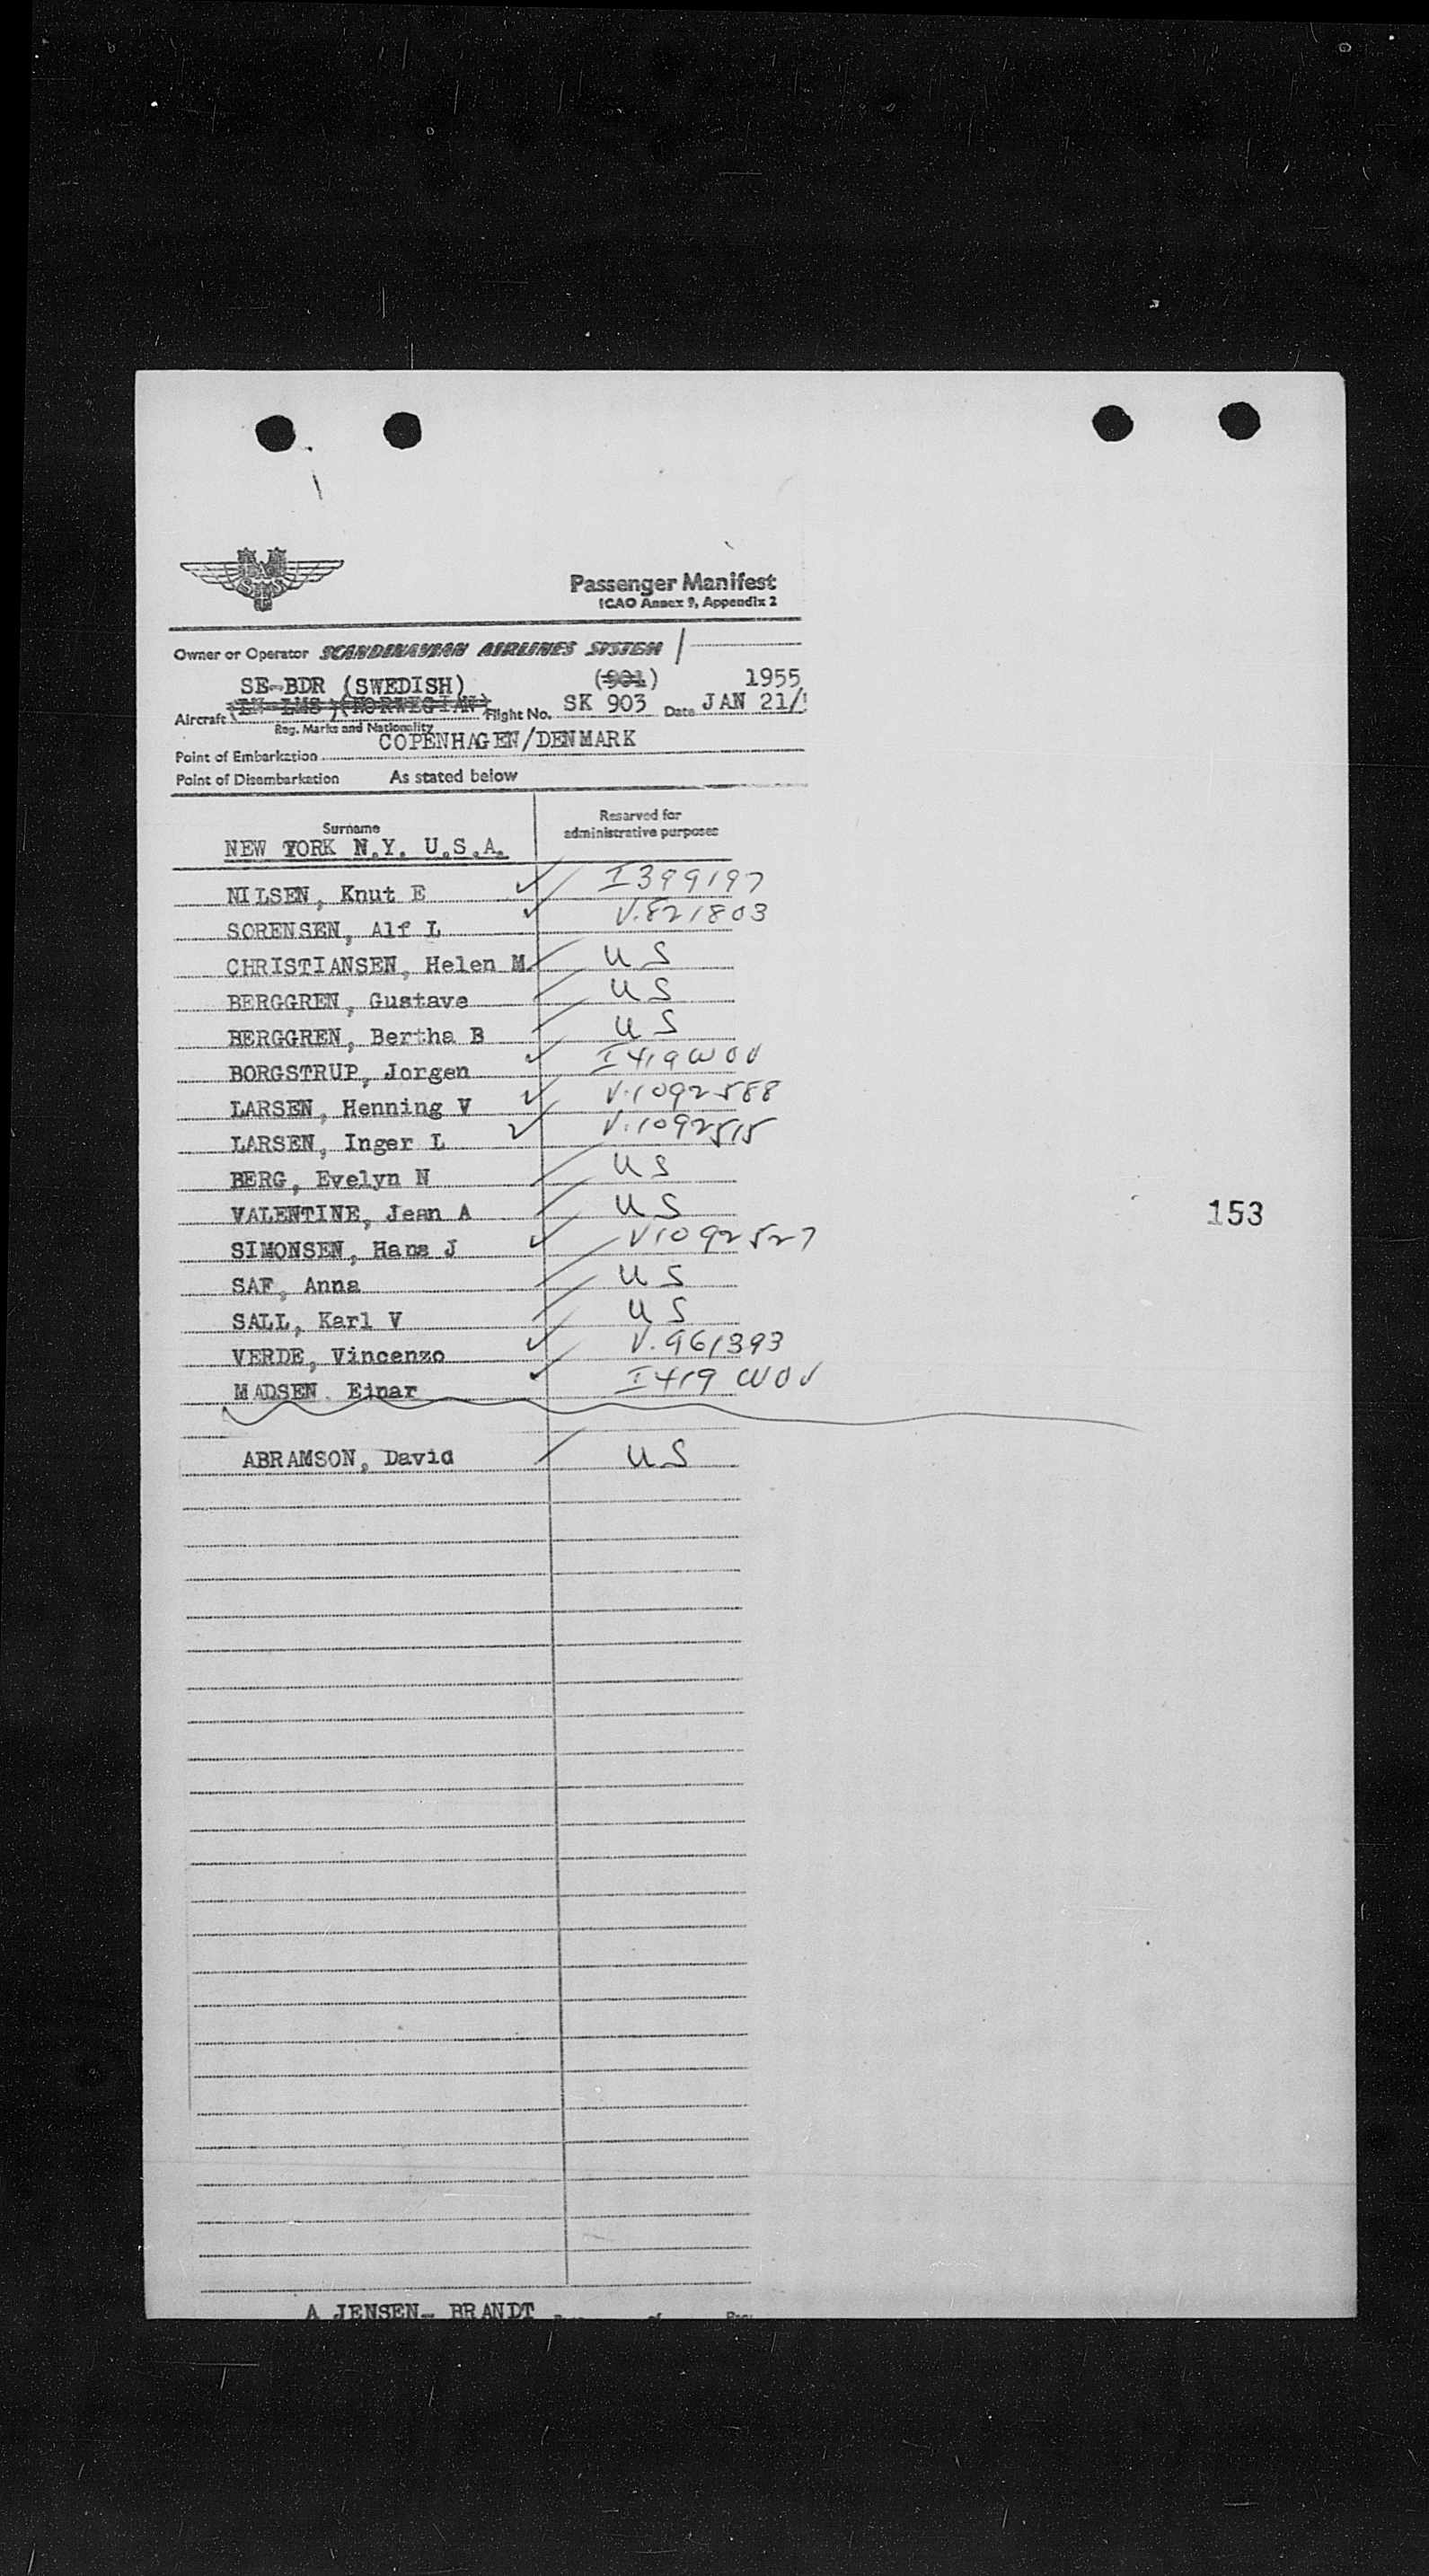 SAS
Passenger Manifest
ICAO Annex 9, Appendix 2
Owner or Operator SCANDINAVIAN AIRLINES SYSTEM
SE-BDR (SWEDISH) (901) 1955
Aircraft (LN-LMS)(NORWEGIAN) Flight No. SK 903 Date JAN 21/
Reg. Marks and Nationality
Point of Embarkation COPENHAGEN/DENMARK
Point of Disembarkation As stated below
Surname Reserved for administrative purposes
NEW YORK N.Y. U.S.A.
NILSEN, Knut E I 399197
SORENSEN, Alf L V.821803
CHRISTIANSEN, Helen M US
BERGGREN, Gustave US
BERGGREN, Bertha B US
BORGSTRUP, Jorgen I 419 WOV
LARSEN, Henning V V.1092588
LARSEN, Inger L V.1092515
BERG, Evelyn N US
VALENTINE, Jean A US
153
SIMONSEN, Hans J V1092527
SAF, Anna US
SALL, Karl V US
VERDE, Vincenzo V.961393
MADSEN. Einar I 419 WOV
ABRAMSON, David US
A JENSEN- BRANDT